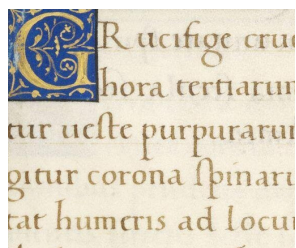 CRucifige cruc
hora tertiarum
tur ueſte purpurarum
gitur corona ſpinaru
tat humeris ad locu